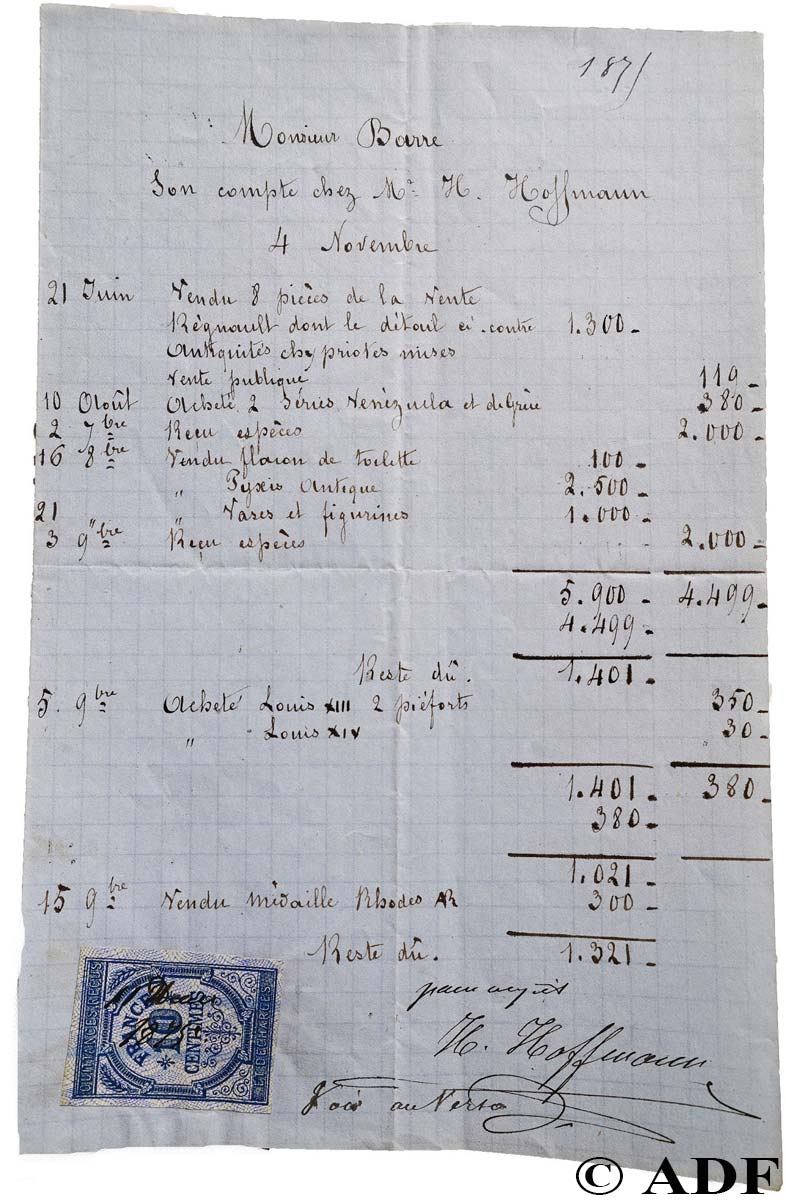 1875
Monsieur Barre
Son compte chez Mr H. Hoffmann
4 Novembre
21 Juin Vendu 8 pièces de la Vente
Régnault dont le détail ci-contre 1.300-
Antiquités chypriotes mises
Vente publique 119-
10 Août Acheté 2 Séries Vénézuela et de Grèce 380-
2 7bre Reçu espèces 2.000-
16 8bre Vendu flacon de toilette 100-
" Pyxis Antique 2.500-
21 " " Vases et figurines 1.000-
3 9bre Reçu espèces 2.000-
5.900- 4.499-
4.499-
Reste dû. 1.401-
5. 9bre Acheté Louis XIII 2 piéforts 350-
" Louis XIV 30-
1.401- 380-
380-
1.021-
15 9bre Vendu médaille Rhodes AR 300-
Reste dû. 1.321-
pour acquit
H. Hoffmann
Voir au Verso
QUITTANCES REÇUS
ET DÉCHARGES
FRANCE
10
CENTIMES
1875
© ADF